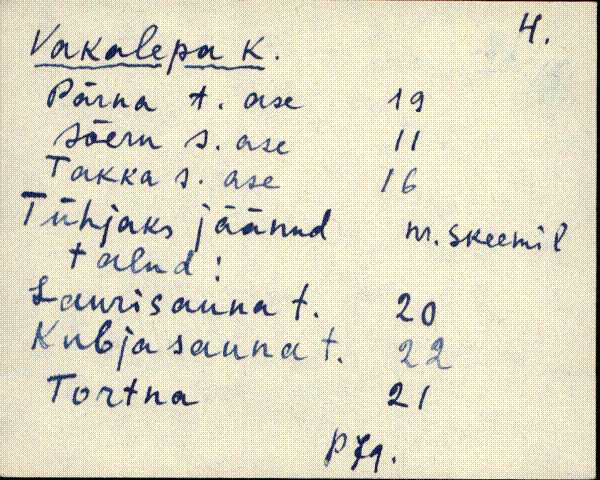 4.
Vakalepa k.
Pärna t. ase 19
Sõeru s. ase 11
Takka s. ase 16
Tühjaks jäänud nr. skeemil
talud:
Laurisauna t. 20
Kubjasauna t. 22
Tortna 21